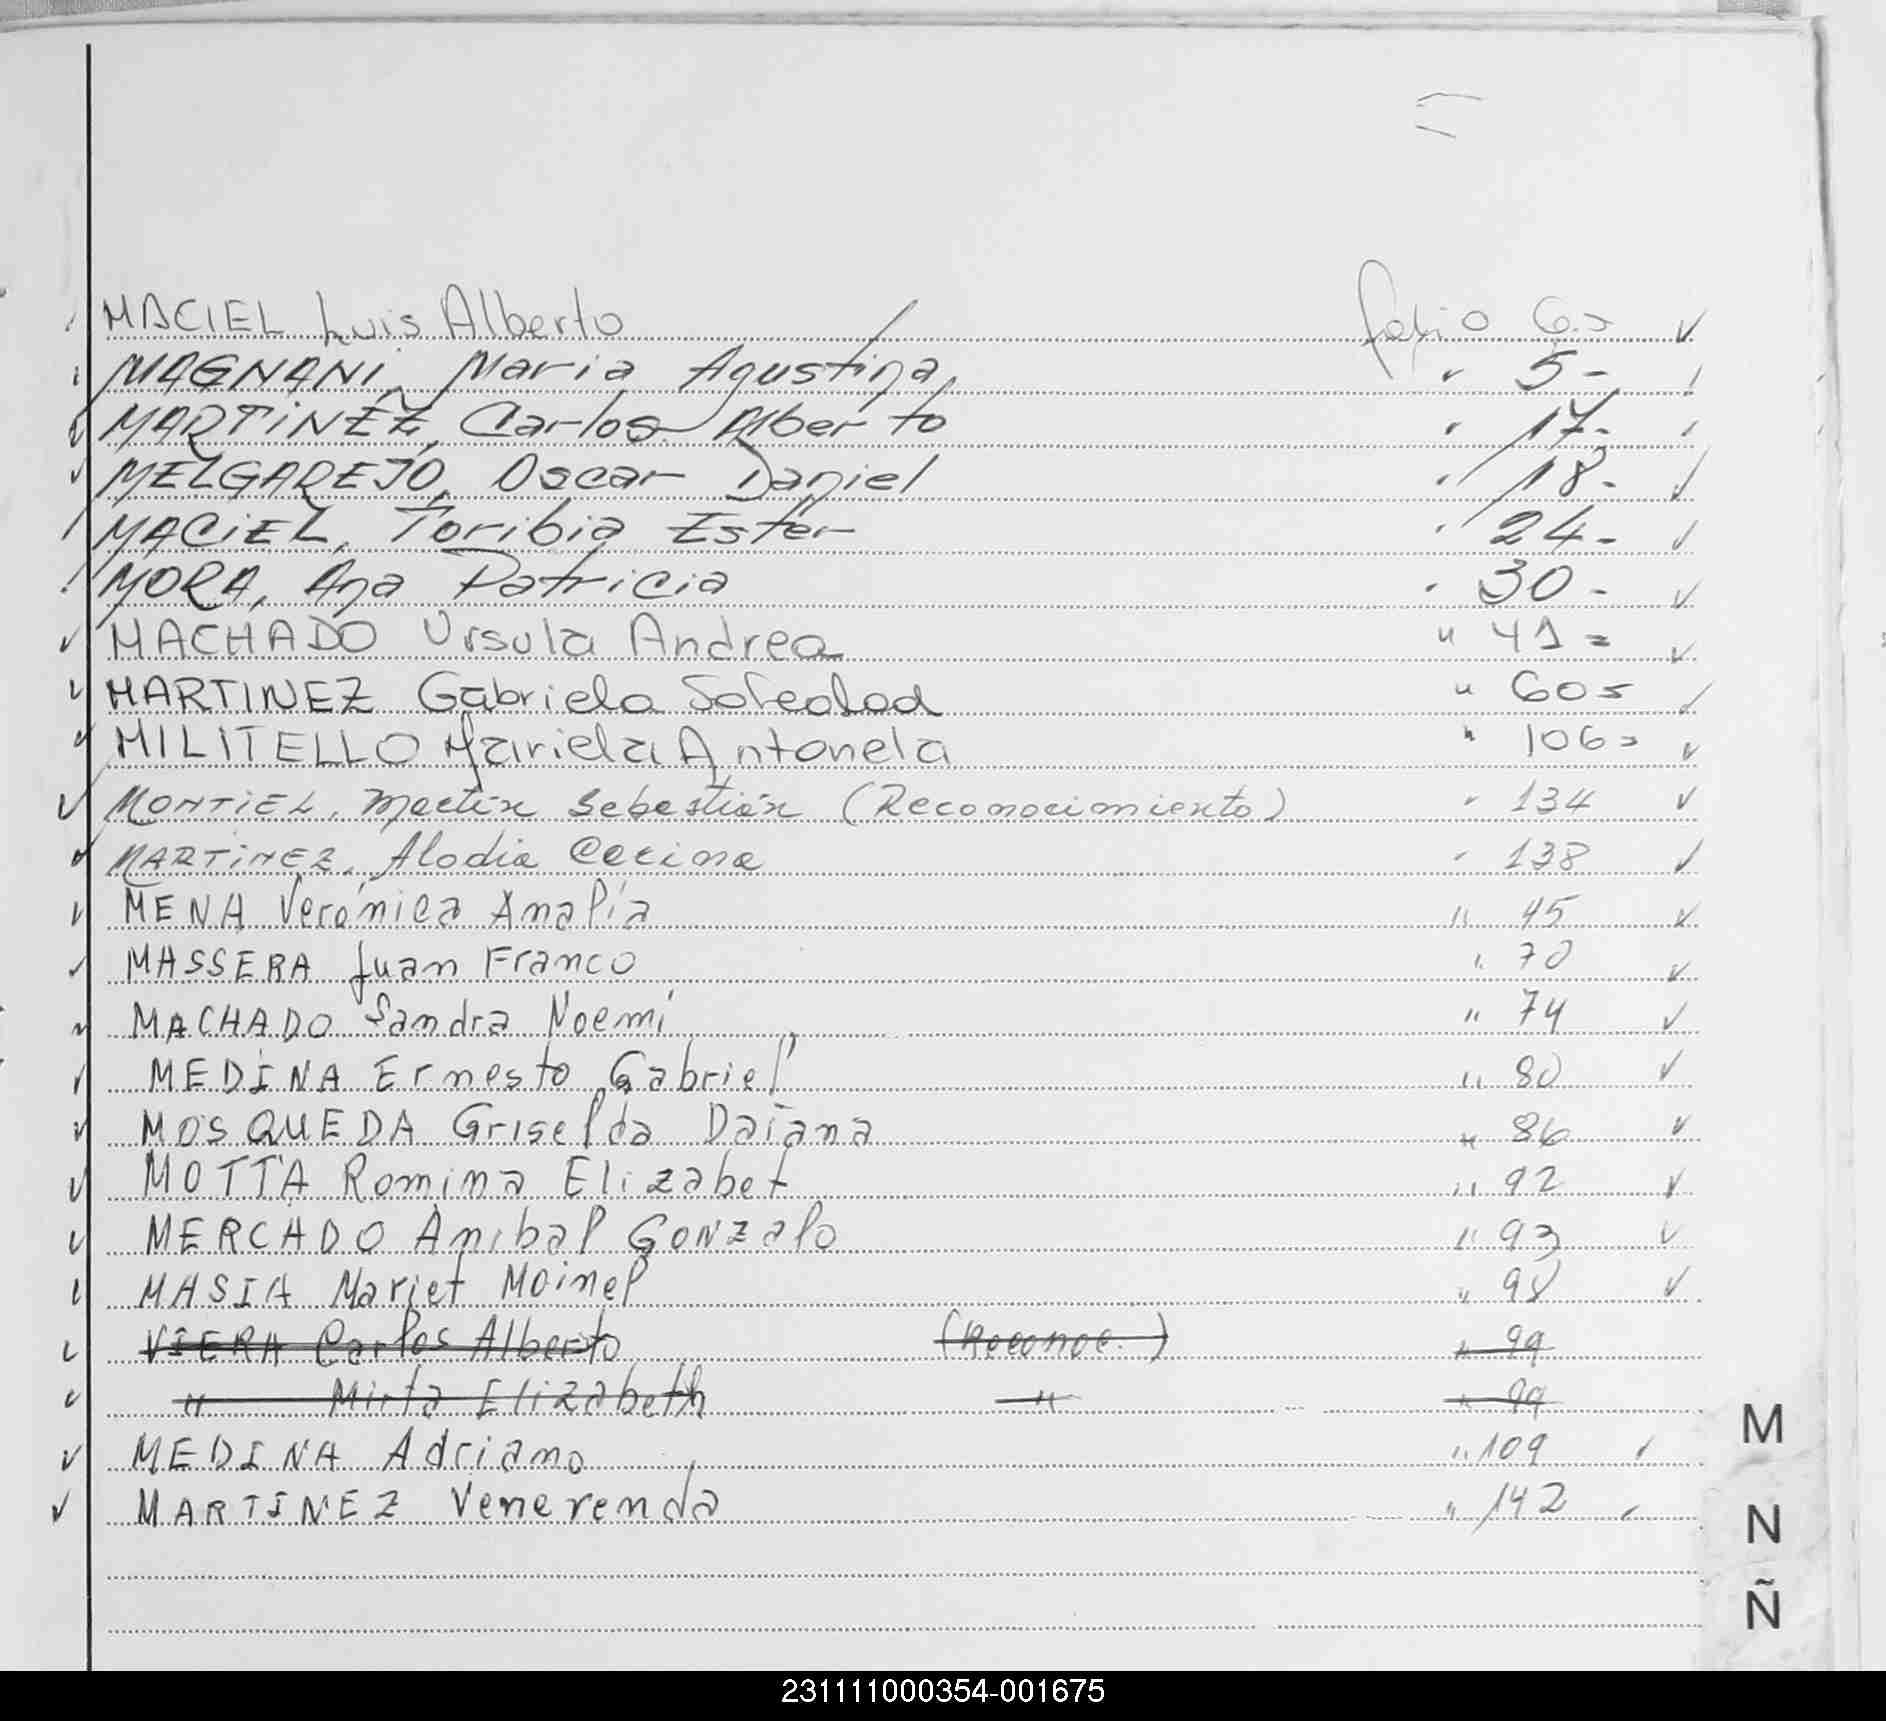 MACIEL Luis Alberto folio 6=
MAGNANI, Maria Agustina, " 5-
MARTINEZ, Carlos Alberto " 17-
MELGAREJO, Oscar Daniel " 18-
MACIEL, Toribia Ester " 24-
MORA, Ana Patricia " 30-
MACHADO Ursula Andrea " 41=
MARTINEZ Gabriela Soledad " 60=
MILITELLO Mariela Antonela " 106=
MONTIEL, Martín Sebastián (Reconocimiento) " 134
MARTINEZ, Alodia " 138
MENA Verónica Analía " 45
MASSERA Juan Franco " 70
MACHADO Sandra Noemí " 74
MEDINA Ernesto Gabriel " 80
MOSQUEDA Griselda Daiana " 86
MOTTA Romina Elizabet " 92
MERCADO Anibal Gonzalo " 93
MASIA Mariet Moinel " 98
VIERA Carlos Alberto (Reconoc.) " 99
" Mirta Elizabeth " " 99
MEDINA Adriano " 109
MARTINEZ Venerenda " 142
M
N
Ñ
231111000354-001675